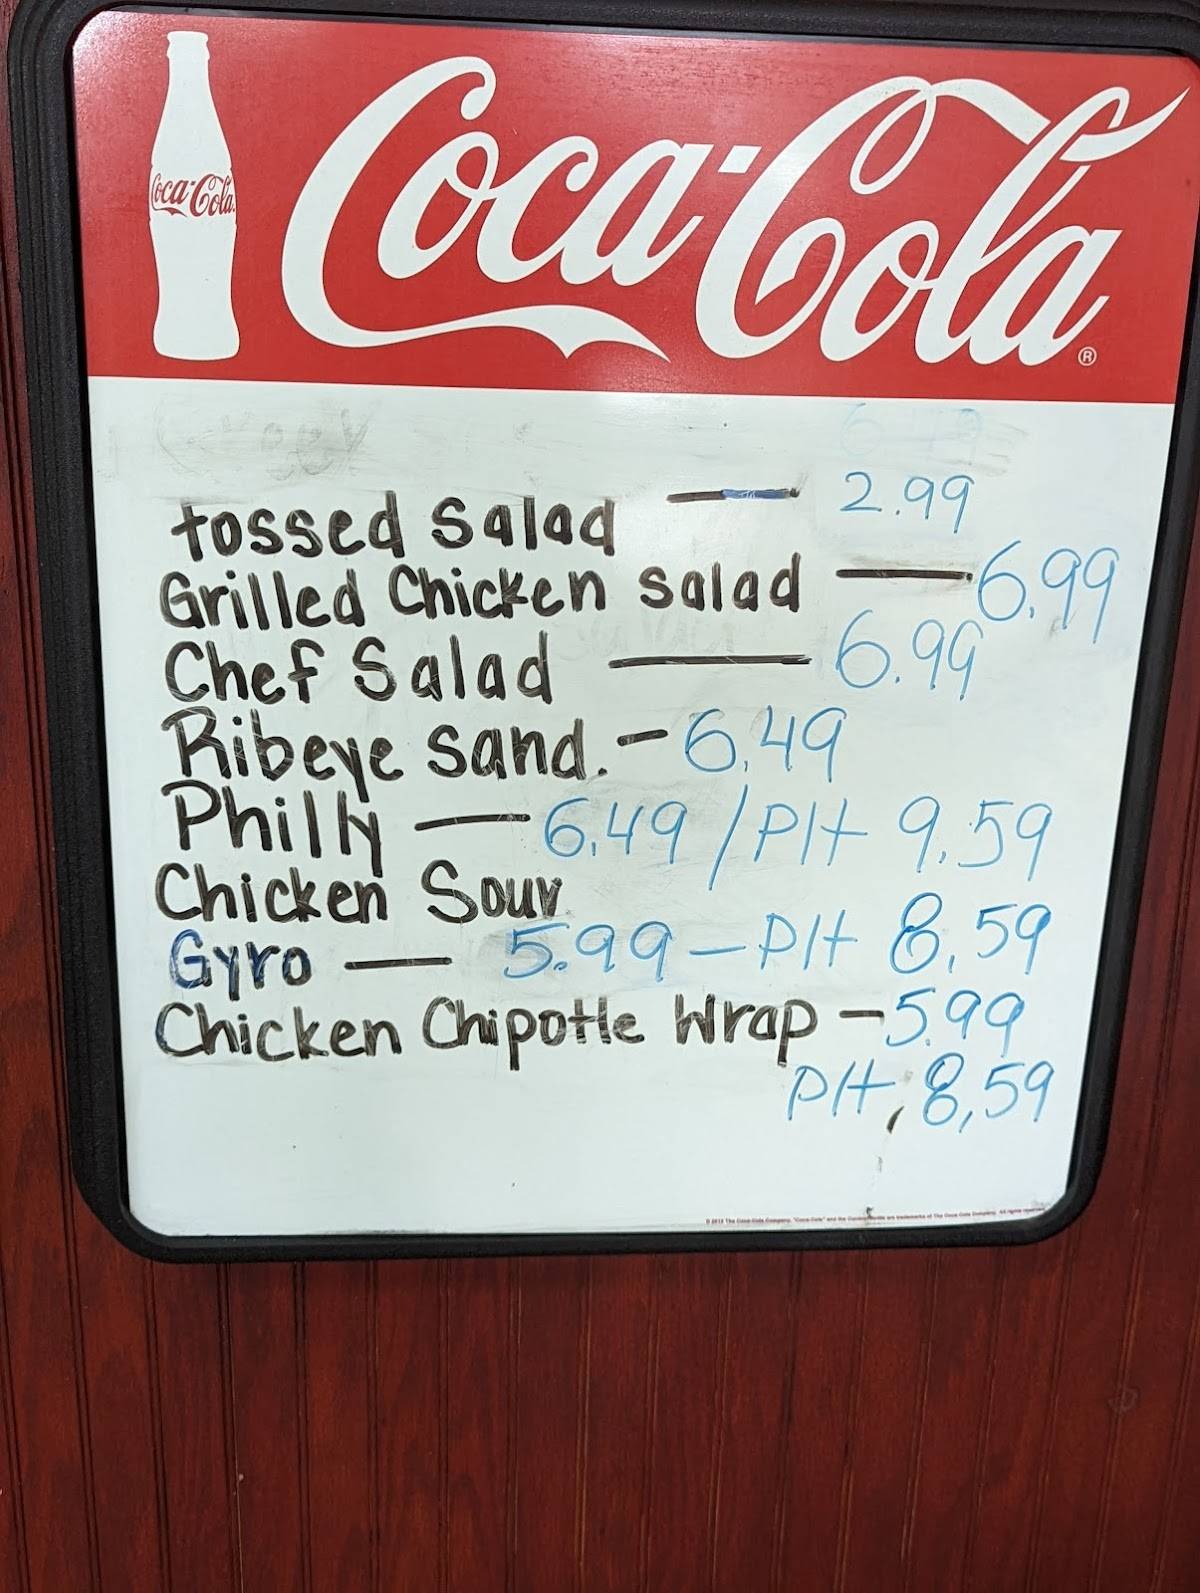 Coca-Cola
Coca-Cola®
tossed Salad — 2.99
Grilled Chicken salad — 6.99
Chef Salad — 6.99
Ribeye Sand. - 6.49
Philly — 6.49 / PH 9.59
Chicken Souv
Gyro — 5.99 - PH 8.59
Chicken Chipotle Wrap - 5.99
PH, 8,59